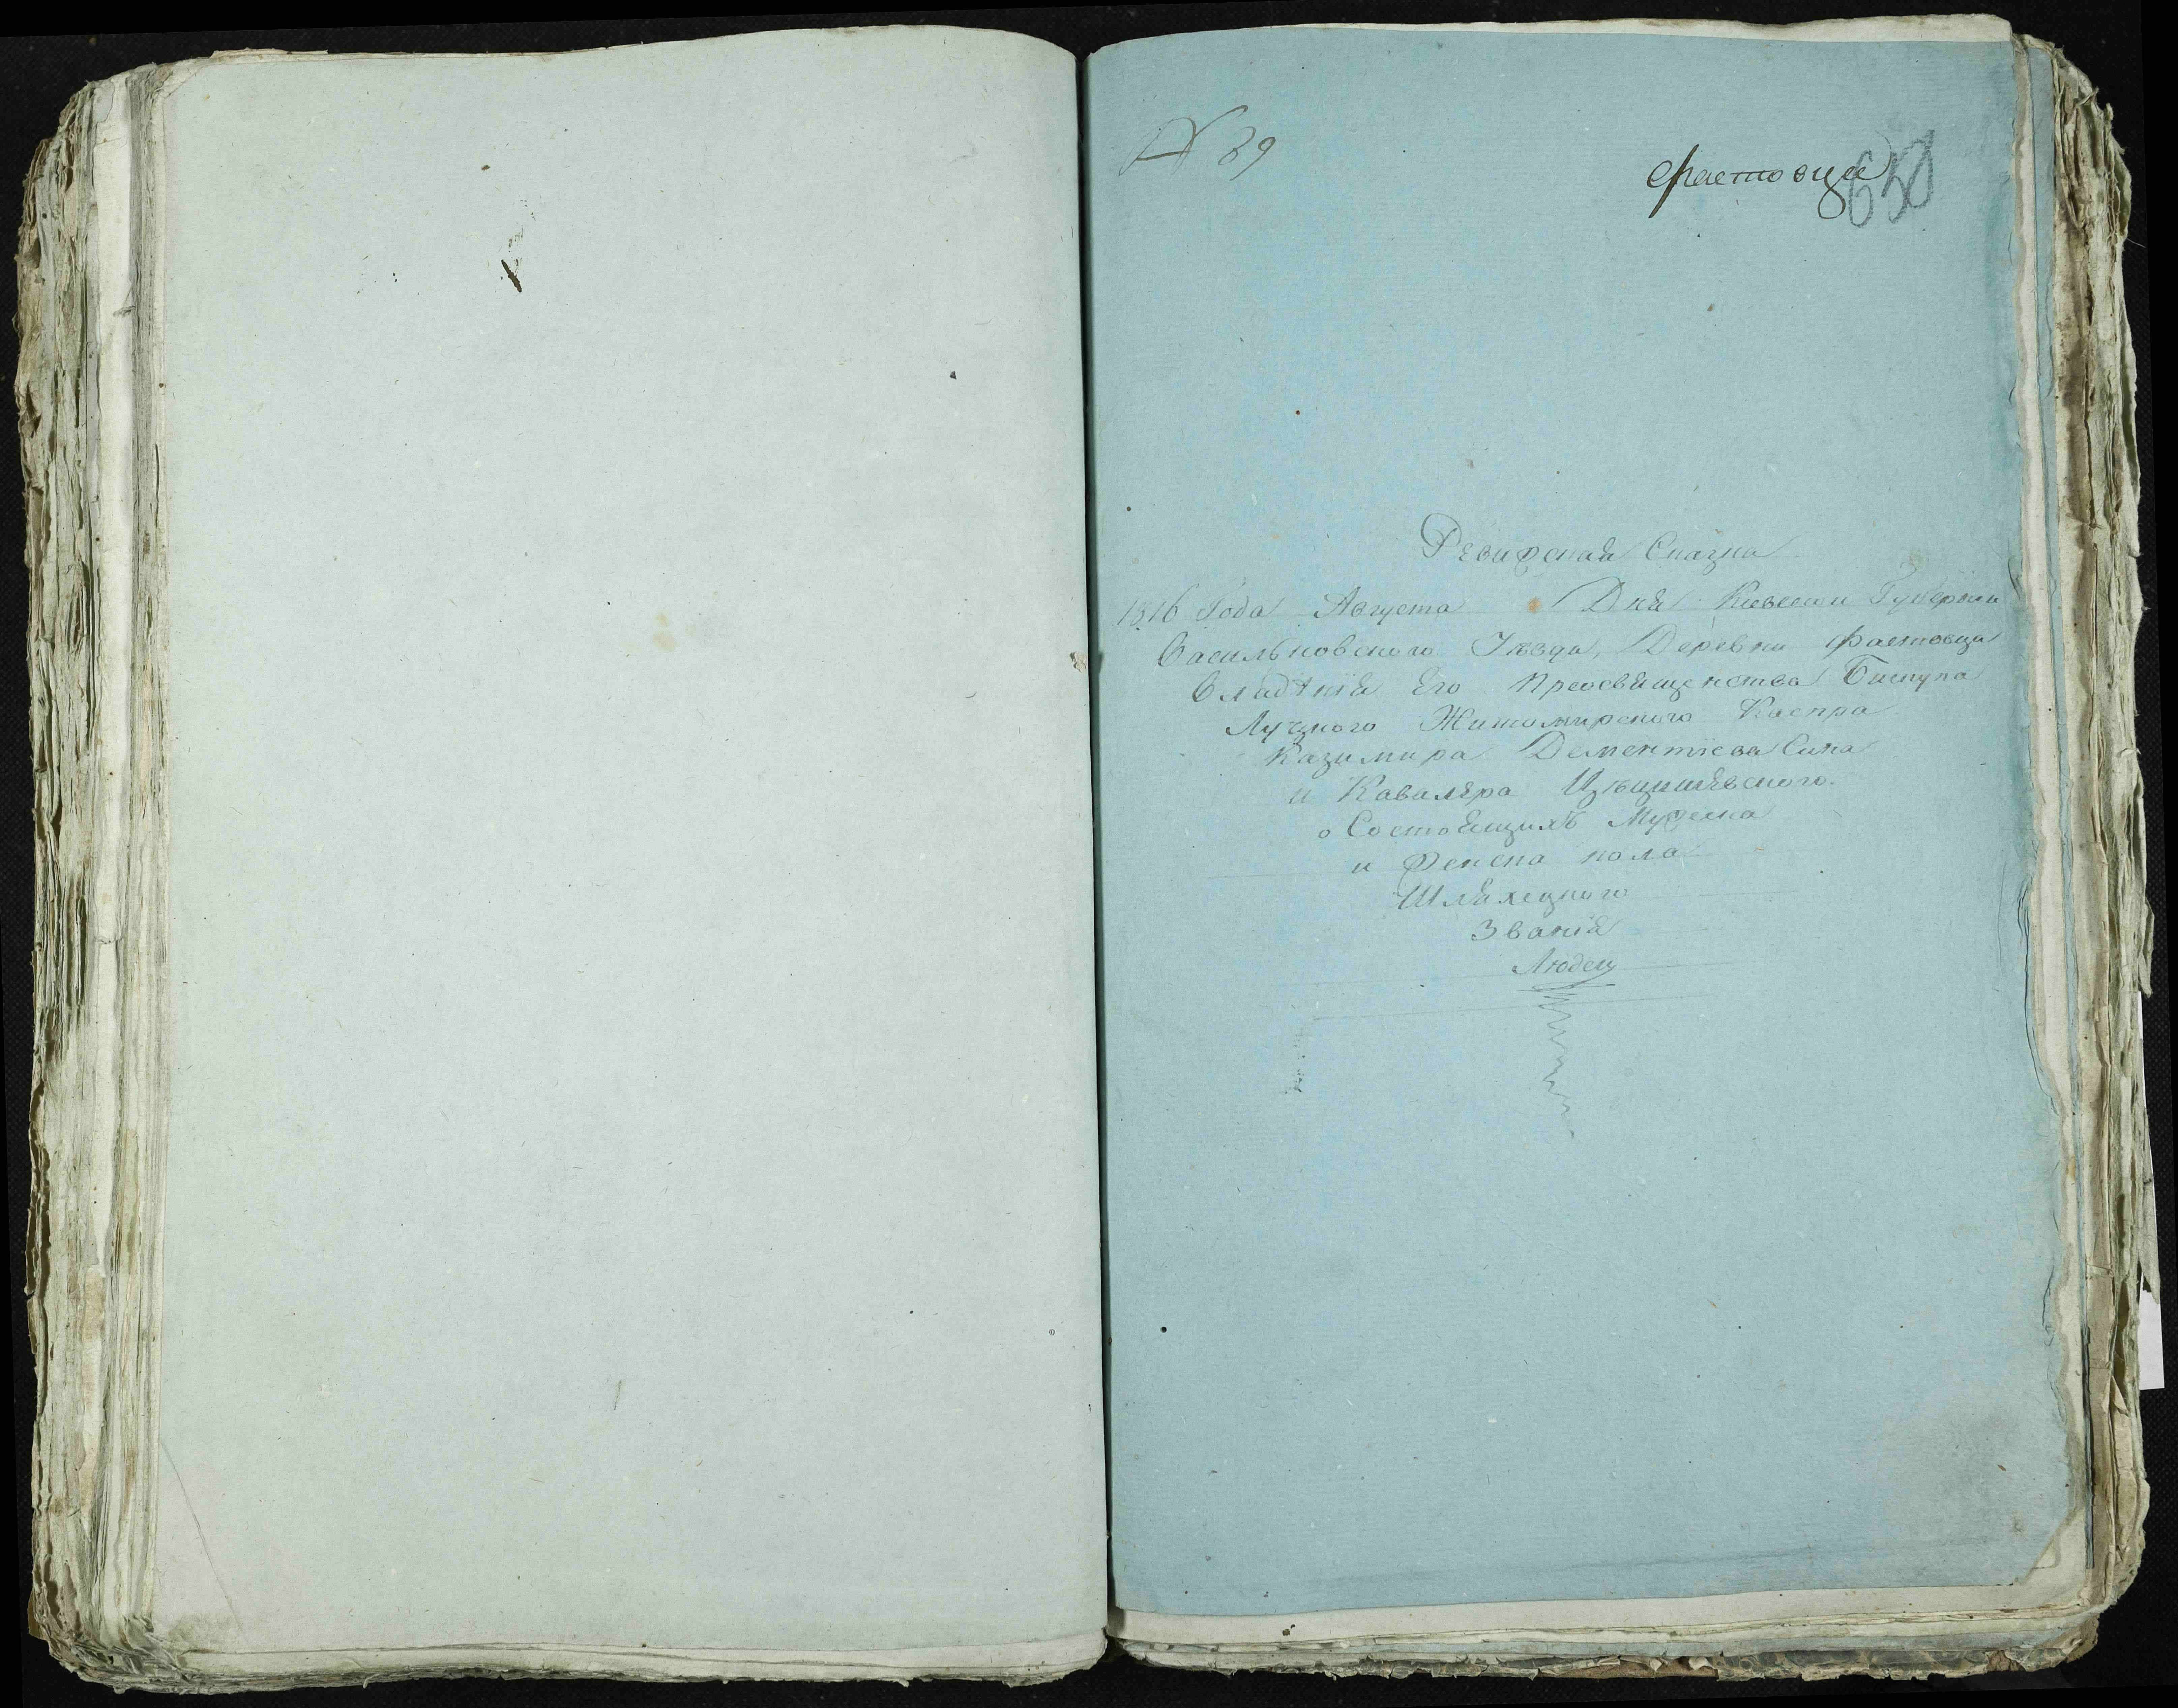 № 89
Фастовци
650
Ревизская Сказка
1816 Года Августа Дня Киевскои Губернїи
Васильковского Уѣзда, Деревни Фастовци
Владѣнїя Его Преосвященства Бискупа
Луцкого Житомирского Каспра
Казимира Дементїева Сина
и Кавалера Цѣцишевского.
о Состоящихъ Мужеска
и Женска пола
Шляхецкого
Званїя
Людей